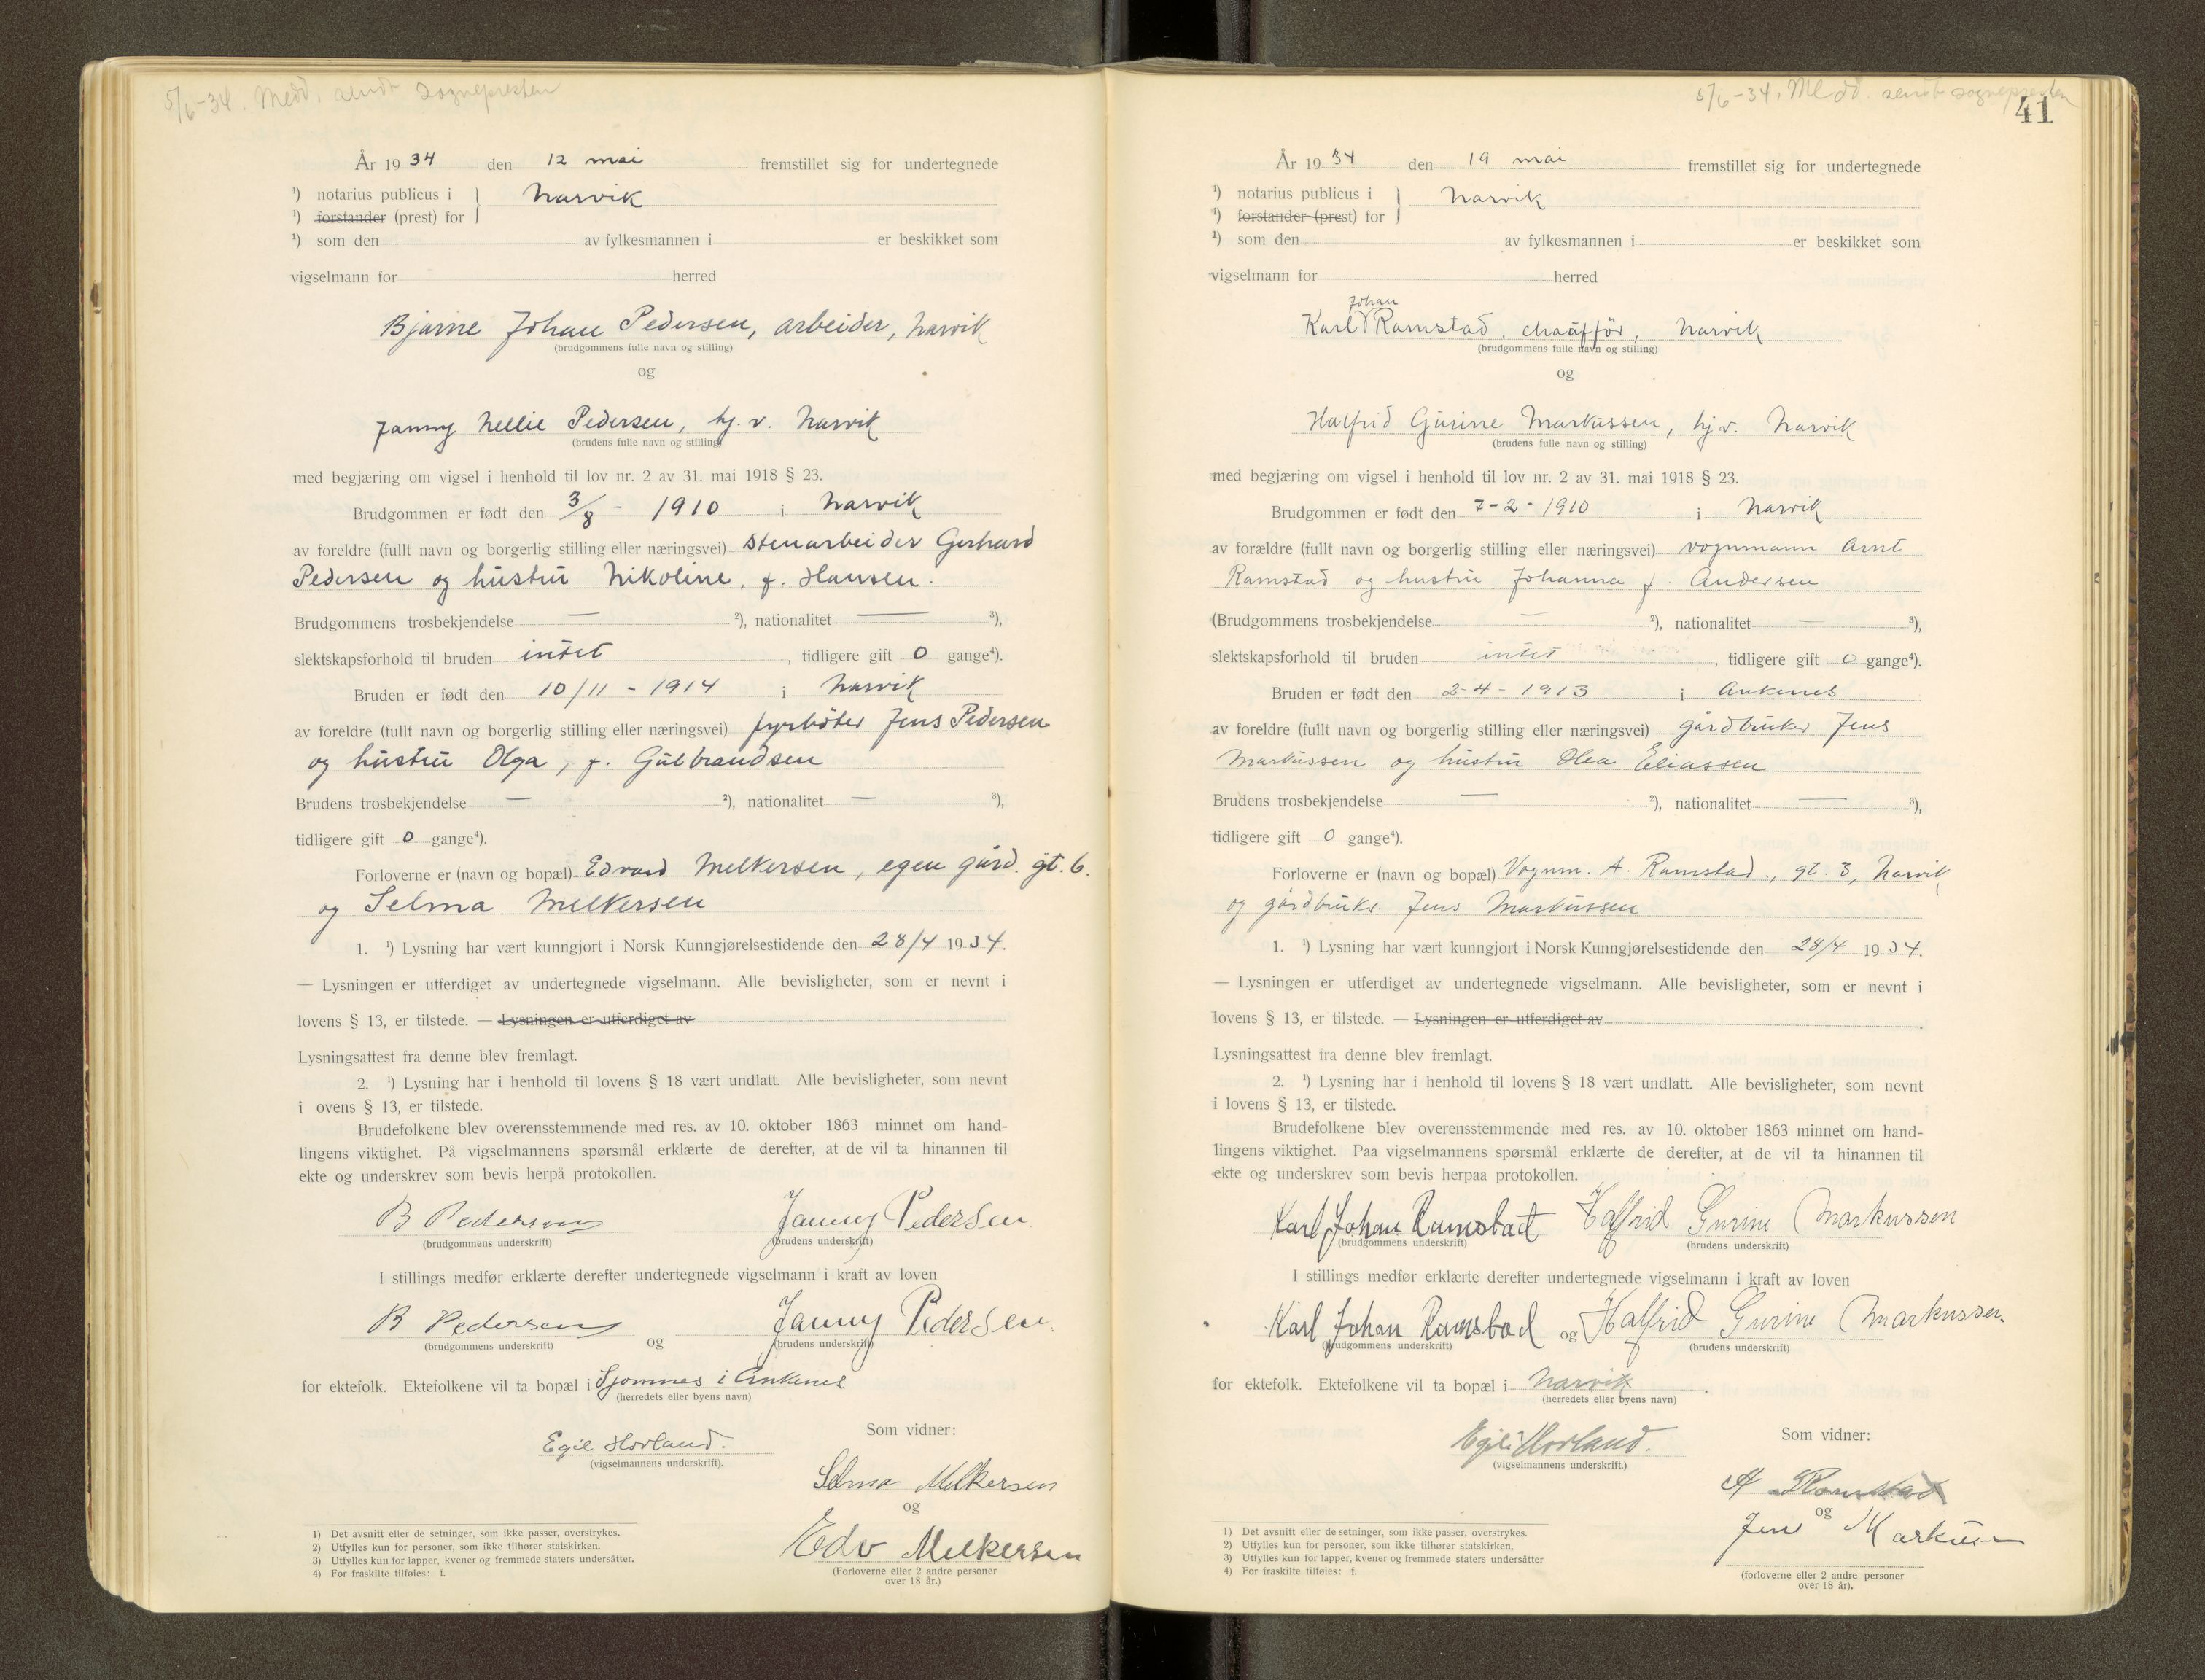 5/6-34. Medd. sendt sognepresten
År 1934 den 12 mai fremstillet sig for undertegnede
¹) notarius publicus i } Narvik
¹) forstander (prest) for
¹) som den av fylkesmannen i er beskikket som
vigselmann for herred
Bjarne Johan Pedersen, arbeider, Narvik
(brudgommens fulle navn og stilling)
og
Janny Nellie Pedersen, hj. v. Narvik
(brudens fulle navn og stilling)
med begjæring om vigsel i henhold til lov nr. 2 av 31. mai 1918 § 23.
Brudgommen er født den 3/8 - 1910 i Narvik
av foreldre (fullt navn og borgerlig stilling eller næringsvei) stenarbeider Gerhard
Pedersen og hustru Nikoline, f. Hansen.
Brudgommens trosbekjendelse — ²), nationalitet — ³),
slektskapsforhold til bruden intet, tidligere gift 0 gange⁴).
Bruden er født den 10/11 - 1914 i Narvik
av foreldre (fullt navn og borgerlig stilling eller næringsvei) fyrbøter Jens Pedersen
og hustru Olga, f. Gulbrandsen
Brudens trosbekjendelse — ²), nationalitet — ³),
tidligere gift 0 gange⁴).
Forloverne er (navn og bopæl) Edvard Melkersen, egen gård. gt. 6.
og Selma Melkersen
1. ¹) Lysning har vært kunngjort i Norsk Kunngjørelsestidende den 28/4 1934.
— Lysningen er utferdiget av undertegnede vigselmann. Alle bevisligheter, som er nevnt i
lovens § 13, er tilstede. — Lysningen er utferdiget av
Lysningsattest fra denne blev fremlagt.
2. ¹) Lysning har i henhold til lovens § 18 vært undlatt. Alle bevisligheter, som nevnt
i ovens § 13, er tilstede.
Brudefolkene blev overensstemmende med res. av 10. oktober 1863 minnet om hand-
lingens viktighet. På vigselmannens spørsmål erklærte de derefter, at de vil ta hinannen til
ekte og underskrev som bevis herpå protokollen.
B Pedersen Janny Pedersen.
(brudgommens underskrift) (brudens underskrift)
I stillings medfør erklærte derefter undertegnede vigselmann i kraft av loven
B Pedersen og Janny Pedersen.
(brudgommens underskrift) (brudens underskrift)
for ektefolk. Ektefolkene vil ta bopæl i Sjomnes i Ankenes
(herredets eller byens navn)
Som vidner:
Egil Hovland.
(vigselmannens underskrift).
Selma Melkersen
og
Edv Melkersen
(Forloverne eller 2 andre personer
over 18 år.)
1) Det avsnitt eller de setninger, som ikke passer, overstrykes.
2) Utfylles kun for personer, som ikke tilhører statskirken.
3) Utfylles kun for lapper, kvener og fremmede staters undersåtter.
4) For fraskilte tilføies: f.
5/6-34. Medd. sendt sognepresten
41
År 1934 den 19 mai fremstillet sig for undertegnede
¹) notarius publicus i } Narvik
¹) forstander (prest) for
¹) som den av fylkesmannen i er beskikket som
vigselmann for herred
Johan
Karl Ramstad, chauffør, Narvik
(brudgommens fulle navn og stilling)
og
Halfrid Gurine Markussen, hj v. Narvik
(brudens fulle navn og stilling)
med begjæring om vigsel i henhold til lov nr. 2 av 31. mai 1918 § 23.
Brudgommen er født den 7-2-1910 i Narvik
av forældre (fullt navn og borgerlig stilling eller næringsvei) vognmann Arnt
Ramstad og hustru Johanna f. Andersen
(Brudgommens trosbekjendelse — ²), nationalitet — ³),
slektskapsforhold til bruden intet, tidligere gift 0 gange⁴).
Bruden er født den 2-4-1913 i Ankenes
av foreldre (fullt navn og borgerlig stilling eller næringsvei) gårdbruker Jens
Markussen og hustru Olea Eliassen
Brudens trosbekjendelse — ²), nationalitet — ³),
tidligere gift 0 gange⁴).
Forloverne er (navn og bopæl) Vognm. A. Ramstad., gt. 3, Narvik
og gårdbruk. Jens Markussen
1. ¹) Lysning har vært kunngjort i Norsk Kunngjørelsestidende den 28/4 1934.
— Lysningen er utferdiget av undertegnede vigselmann. Alle bevisligheter, som er nevnt i
lovens § 13, er tilstede. — Lysningen er utferdiget av .
Lysningsattest fra denne blev fremlagt.
2. ¹) Lysning har i henhold til lovens § 18 vært undlatt. Alle bevisligheter, som nevnt
i lovens § 13, er tilstede.
Brudefolkene blev overensstemmende med res. av 10. oktober 1863 minnet om hand-
lingens viktighet. Paa vigselmannens spørsmål erklærte de derefter, at de vil ta hinannen til
ekte og underskrev som bevis herpaa protokollen.
Karl Johan Ramstad Halfrid Gurine Markussen
(brudgommens underskrift) (brudens underskrift)
I stillings medfør erklærte derefter undertegnede vigselmann i kraft av loven
Karl Johan Ramstad og Halfrid Gurine Markussen.
(brudgommens underskrift) (brudens underskrift)
for ektefolk. Ektefolkene vil ta bopæl i Narvik.
(herredets eller byens navn)
Som vidner:
Egil Hovland.
(vigselmannens underskrift.)
A Ramstad
og
Jens Markussen
(forloverne eller 2 andre personer
over 18 år).
1) Det avsnitt eller de setninger, som ikke passer, overstrykes.
2) Utfylles kun for personer, som ikke tilhører statskirken.
3) Utfylles kun for lapper, kvener og fremmede staters undersåtter
4) For fraskilte tilføies: f.